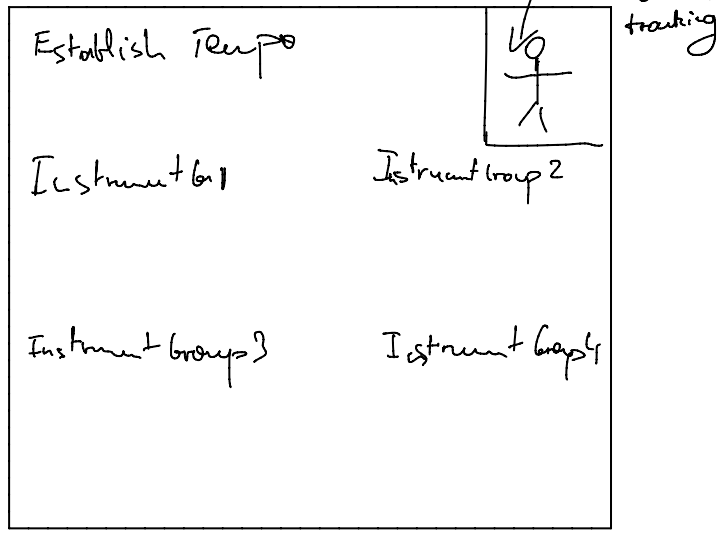 Establish Tempo
tracking
Instrument Gr 1
Instrument Group 2
Instrument Group 3
Instrument Group 4